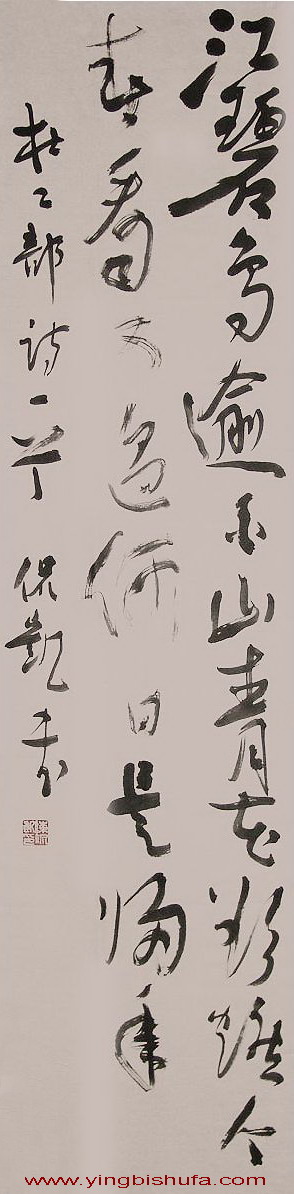 江碧鸟逾白山青花欲燃今
春看又過何日是歸年
杜工部詩一首 凱書
www.yingbishufa.com